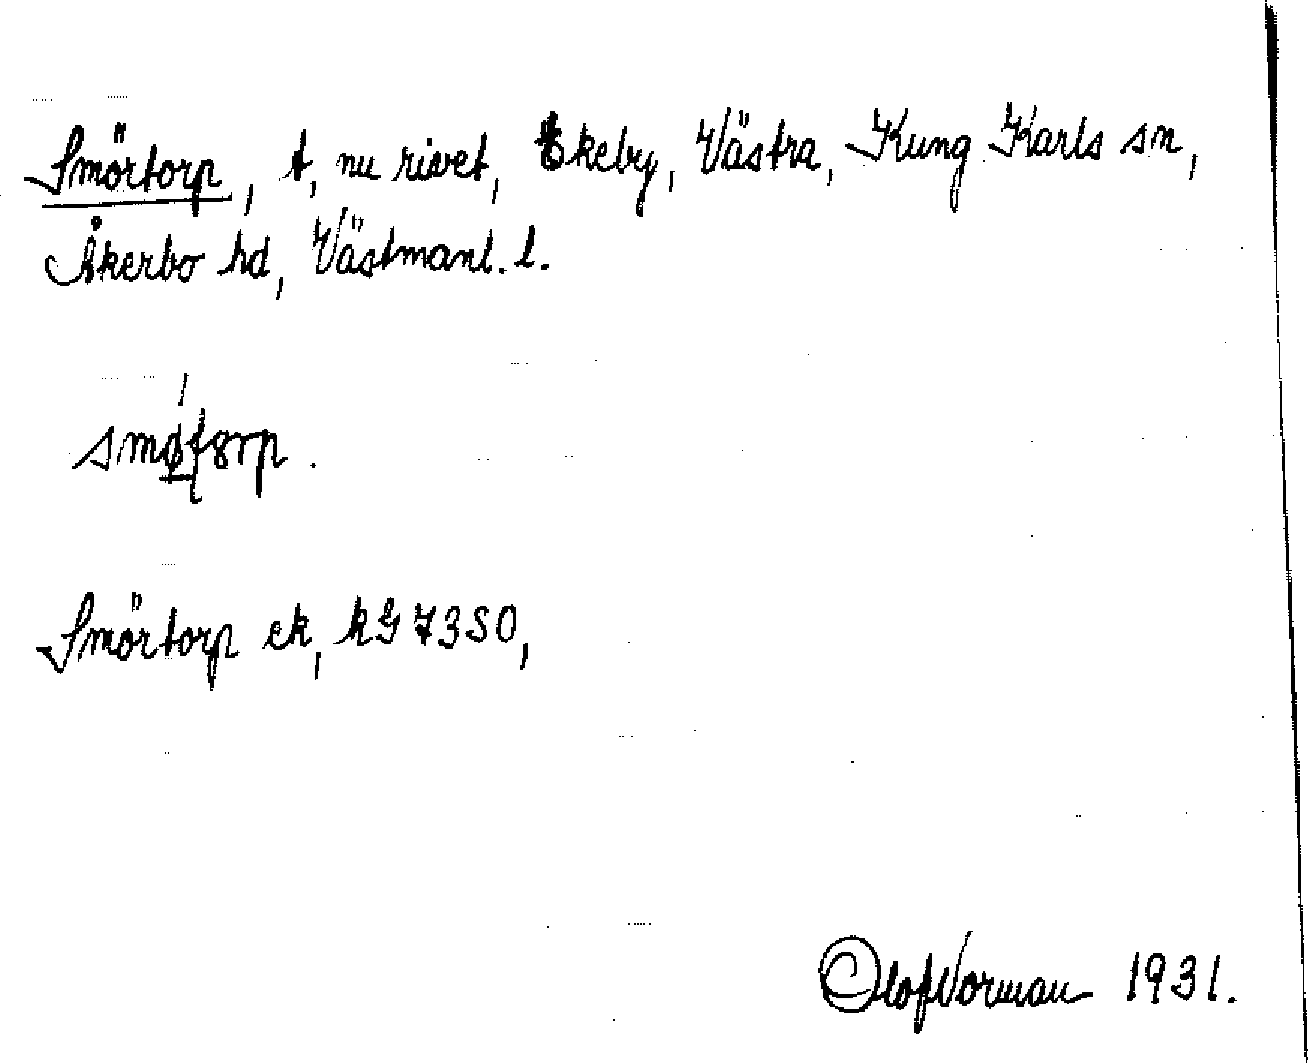 Smörtorp, t, nu rivet, Ekeby, Västra, Kung Karls sn,
Åkerbo hd, Västmanl. l.
Smörtorp ek, kG 7350,
Olof Norman 1931.